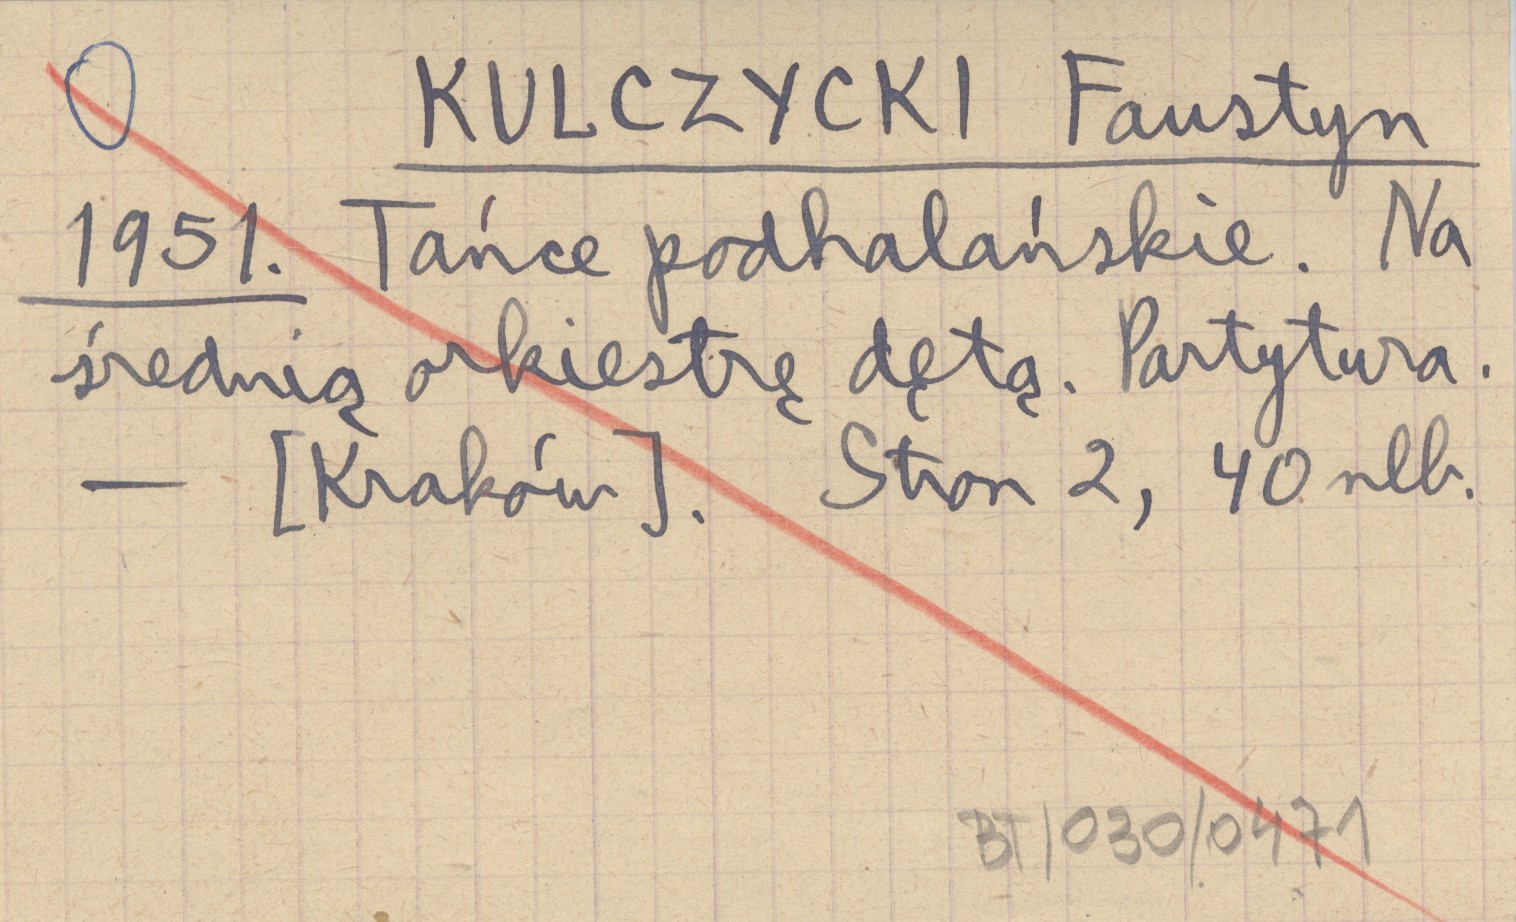 KULCZYCKI Faustyn
1951. Tańce podhalańskie. Na
średnią orkiestrę dętą. Partytura.
— [Kraków]. Stron 2, 40 nlb.
BT/030/0471